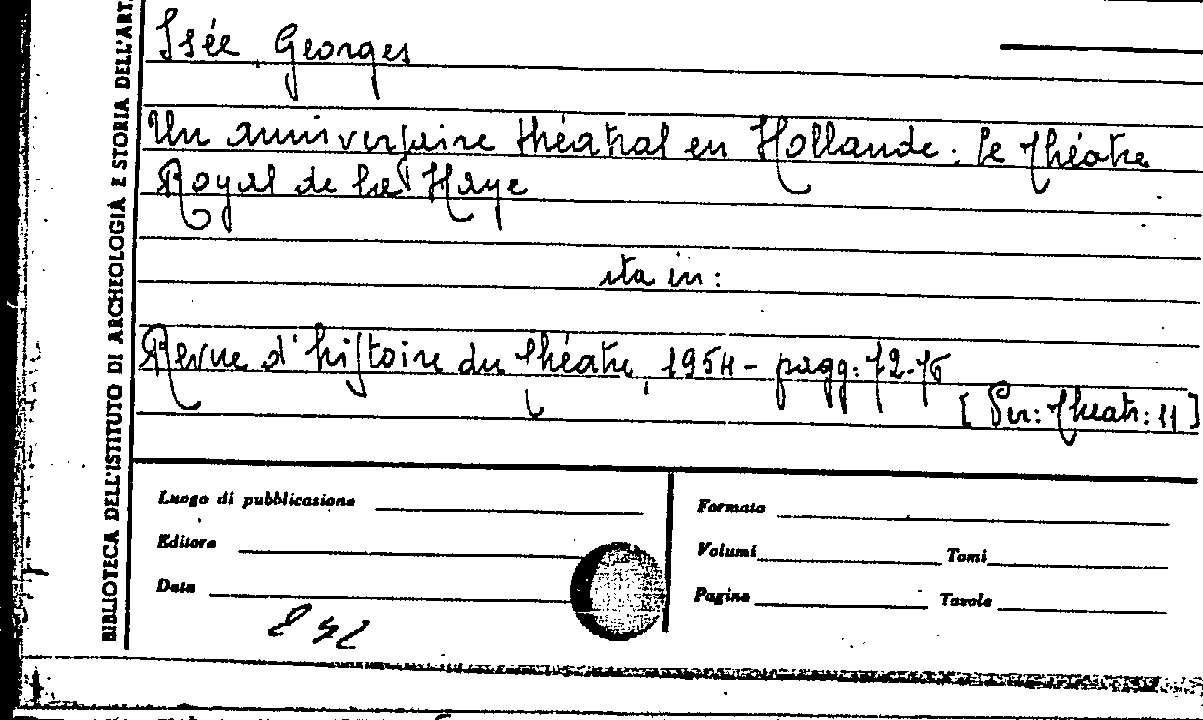 Isée, Georges
Un anniversaire théatral en Hollande: le théatre
Royal de la Haye
sta in:
Revue d'histoire du théatre, 1954 - pagg: 72-76
[ Per: theatr: 11 ]
BIBLIOTECA DELL'ISTITUTO DI ARCHEOLOGIA E STORIA DELL'ART
Luogo di pubblicazione
Editore
Data
Formato
Volumi Tomi
Pagine Tavole